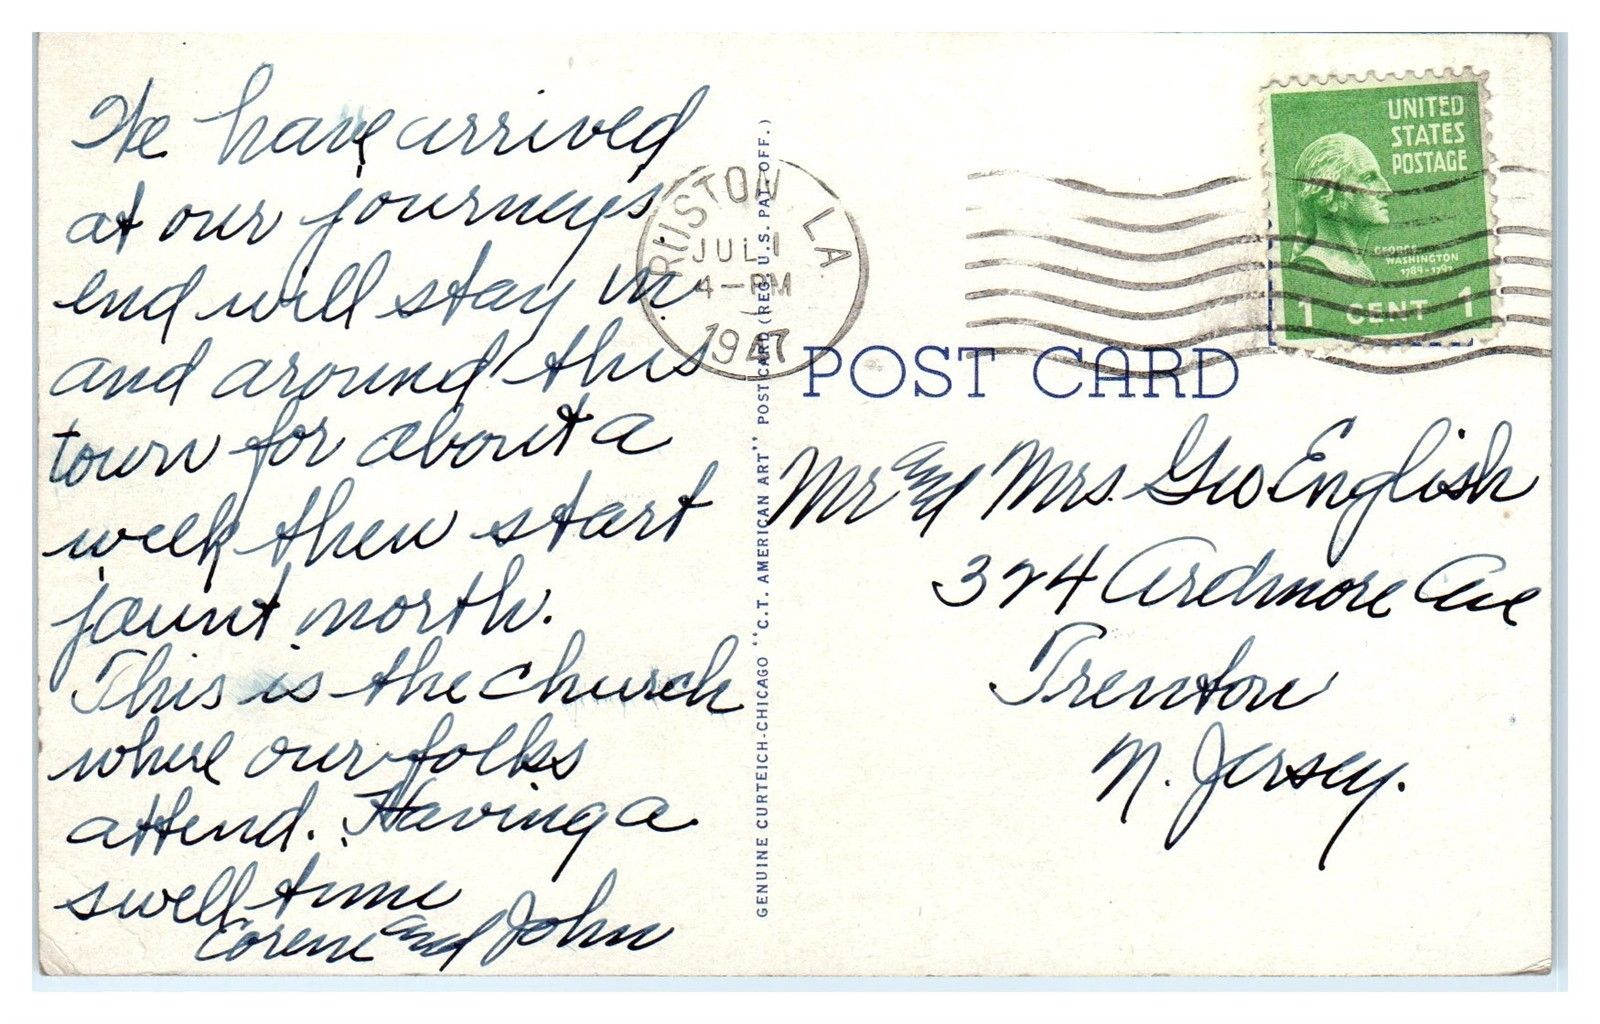 We have arrived
at our journeys
end will stay in
and around this
town for about a
week then start
jaunt north.
This is the church
where our folks
attend. Having a
swell time
Corene and John
GENUINE CURTEICH-CHICAGO "C.T. AMERICAN ART" POST CARD (REG. U.S. PAT. OFF.)
RUSTON, LA.
JUL 1
4-PM
1947
UNITED
STATES
POSTAGE
GEORGE
WASHINGTON
1789-1797
1 CENT 1
POST CARD
Mr and Mrs. Geo English
324 Ardmore Ave
Trenton
N. Jersey.